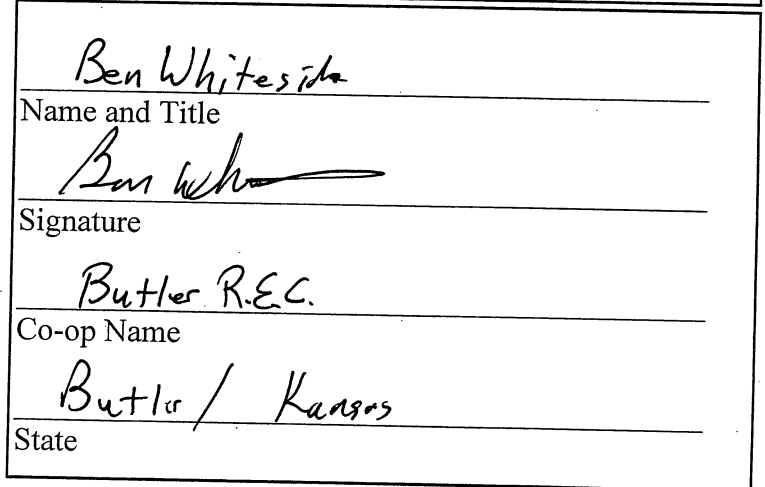 Ben Whiteside
Name and Title
Ben Wh
Signature
Butler R.E.C.
Co-op Name
Butler / Kansas
State